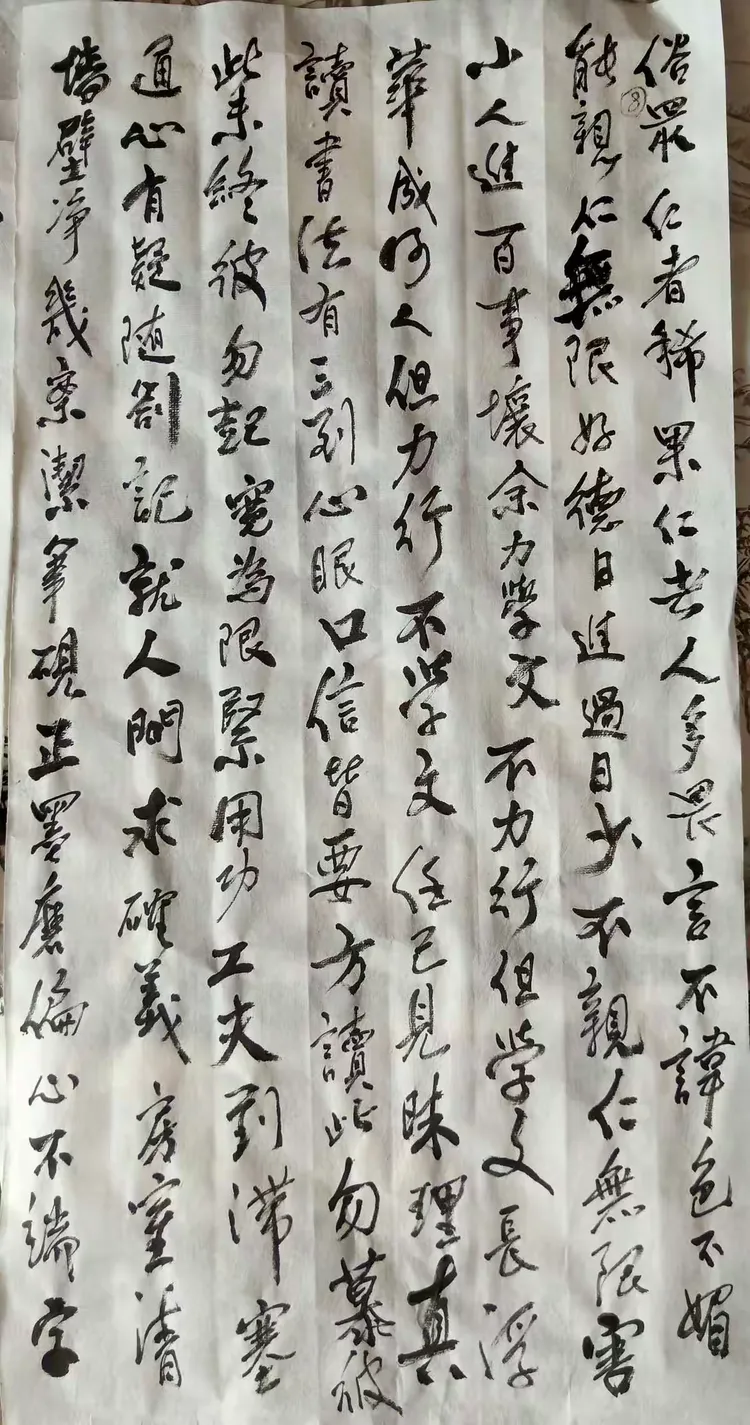 俗眾仁者稀果仁者人多畏言不諱色不媚
⑧
能親仁無限好德日進過日少不親仁無限害
小人進百事壞余力學文不力行但學文長浮
華成何人但力行不學文任己見昧理真
讀書法有三到心眼口信皆要方讀此勿慕彼
此未終彼勿起寬為限緊用功工夫到滯塞
通心有疑随劄記就人問求確義房室清
墻壁净幾案潔筆硯正墨磨偏心不端字